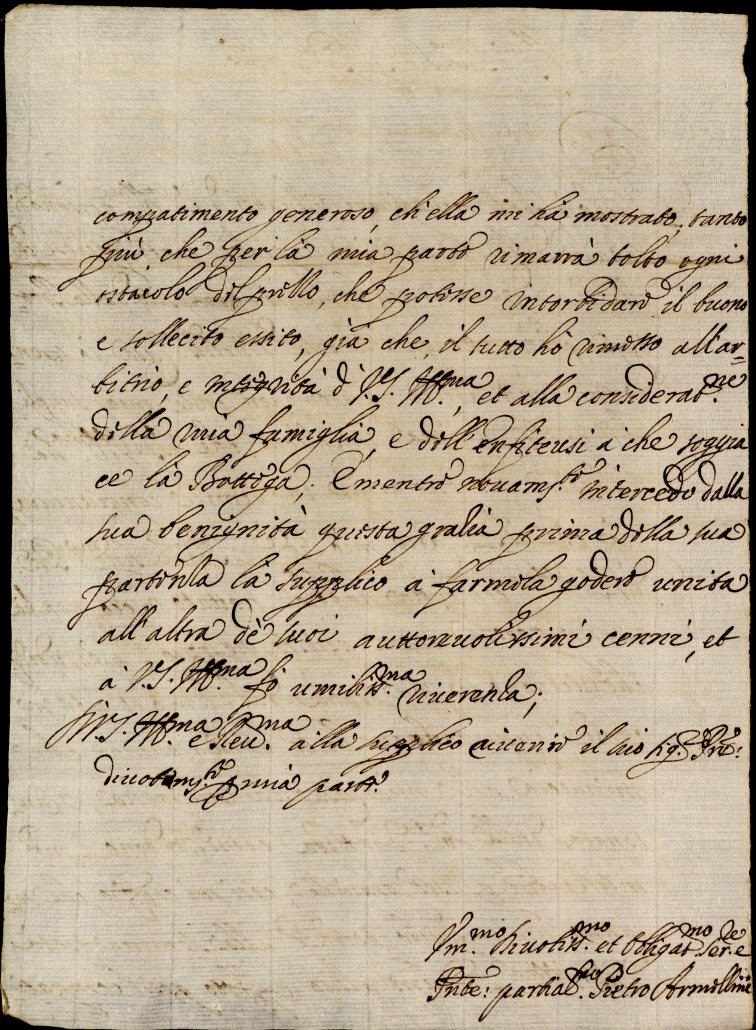 compatimento generoso, ch'ella mi hà mostrato, tanto
più che per là mia parte rimarrà tolto ogni
ostacolo del prezzo, che potesse intorbidare il buono
e sollecito essito, già che, il tutto hò rimesso all'ar=
bitrio, e integrità d V.S. Ill.ma, et alla considerat.ne
della mia famiglia, e dell'enfiteusi à che soggia
ce là Bottega; E mentre novam.te intercedo dalla
sua benignità questa grazia prima della sua
partenza là supplico à farmela godere unita
all'altra de suoi auttorevolissimi cenni, et
à V.S. Ill.ma fò umiliss.ma riverenza;
V.S. Ill.ma e Rev.ma alla supplico riverire il suo sig.r Pre:
divotam.te p mià parte.
Um.mo Divotiss.mo et Obligat.mo Ser.e
Pietro Armellini